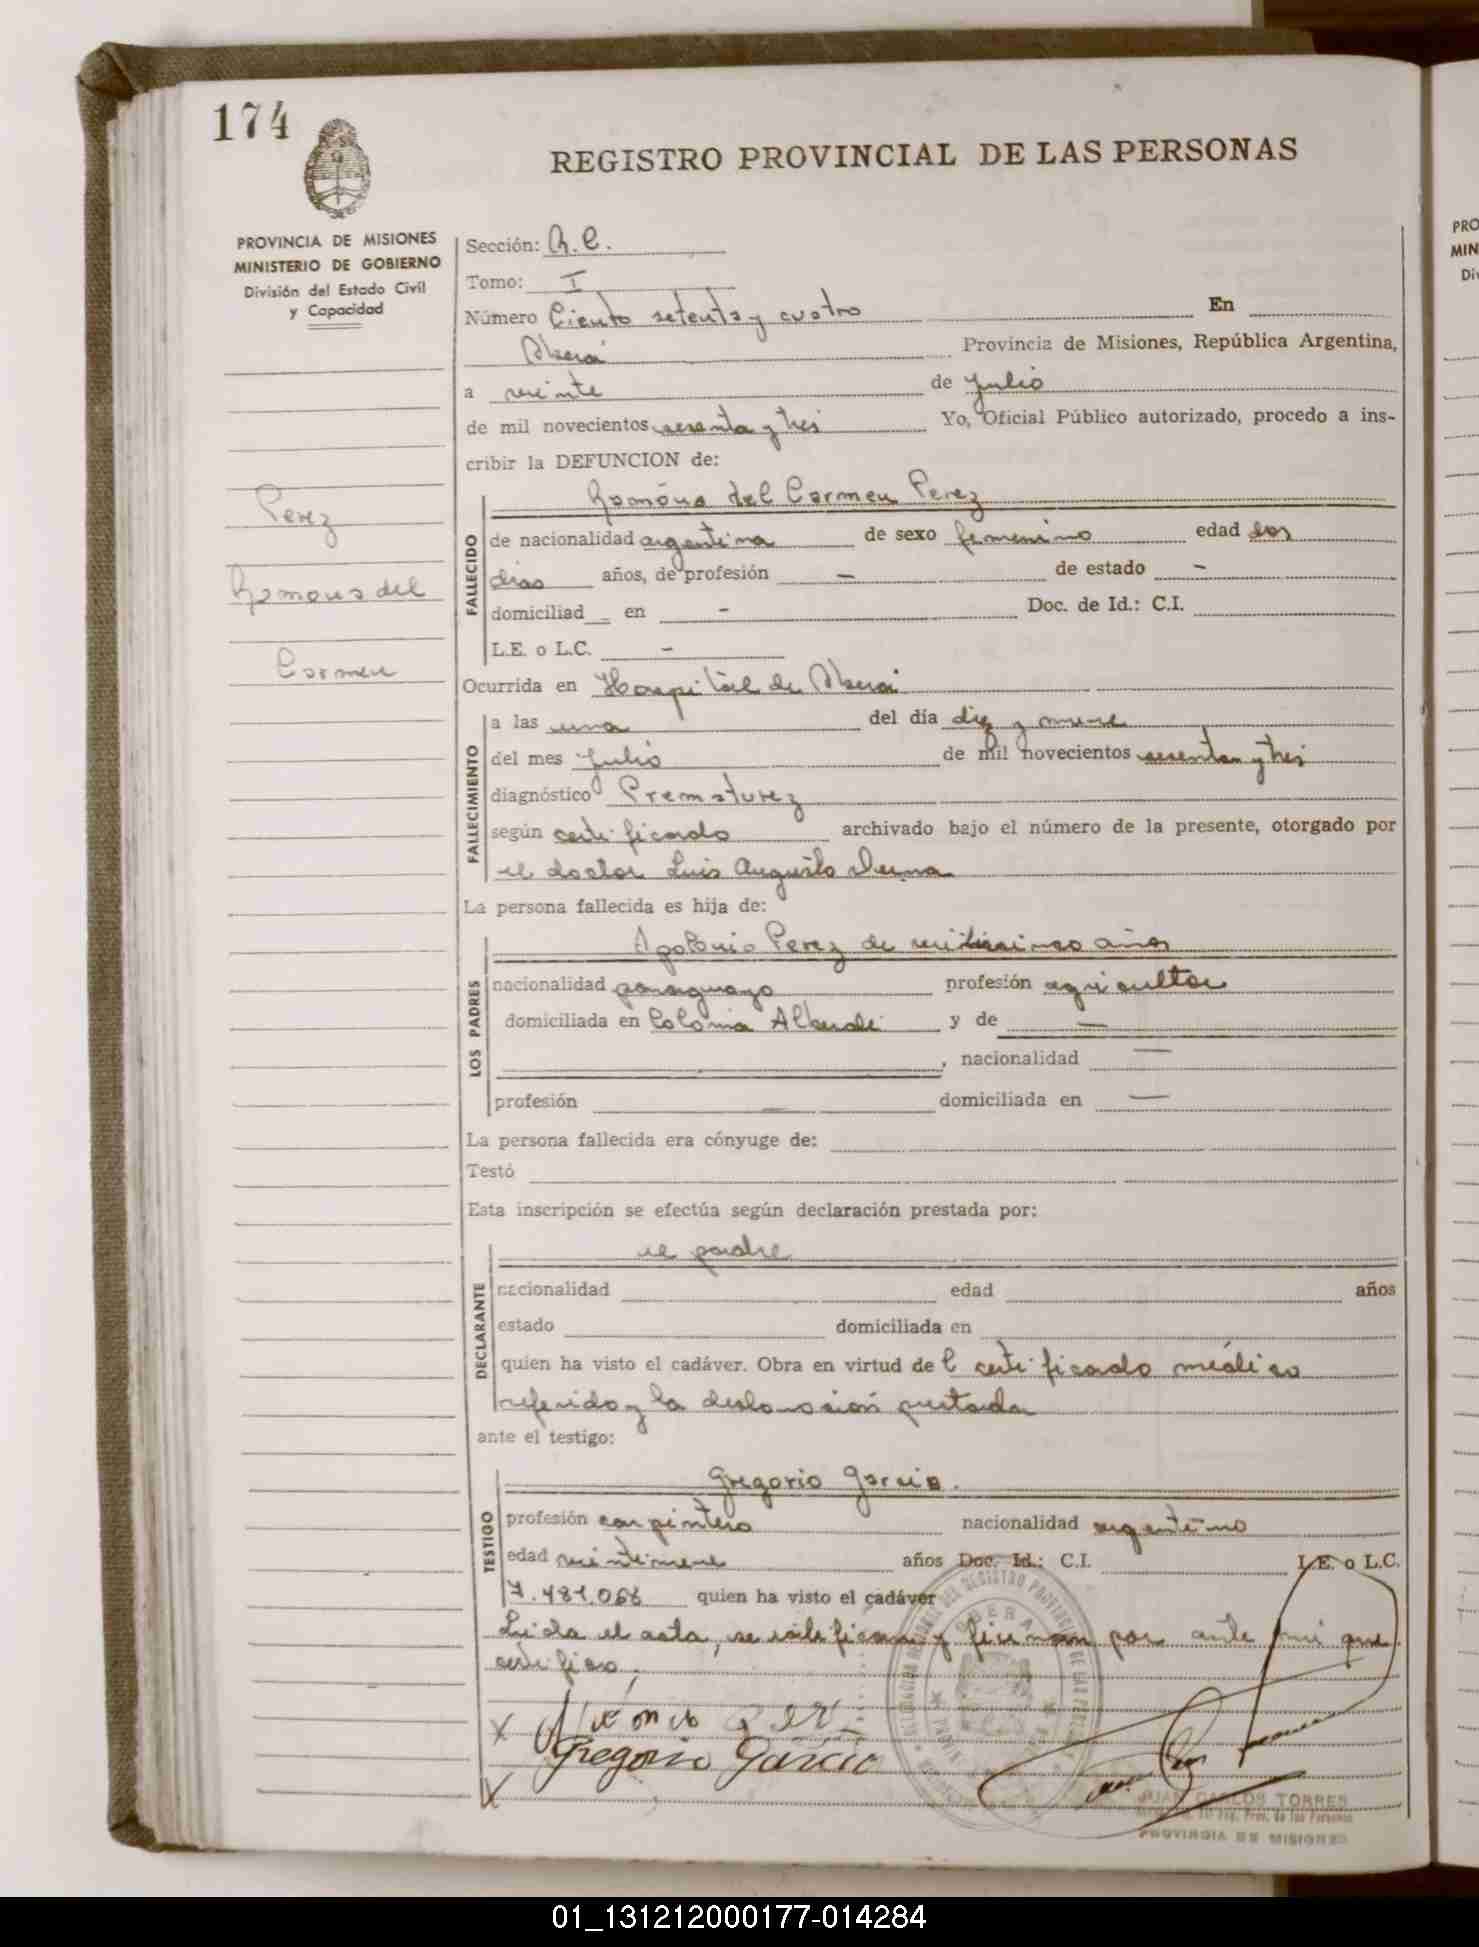 174
REGISTRO PROVINCIAL DE LAS PERSONAS
PROVINCIA DE MISIONES
MINISTERIO DE GOBIERNO
División del Estado Civil
y Capacidad
Perez
Ramona del
Carmen
Sección: R.C.
Tomo: I
Número Ciento setenta y cuatro En
Oberá Provincia de Misiones, República Argentina,
a veinte de Julio
de mil novecientos sesenta y tres Yo, Oficial Público autorizado, procedo a ins-
cribir la DEFUNCION de:
FALLECIDO
Ramóna del Carmen Perez
de nacionalidad argentina de sexo femenino edad dos
días años, de profesión - de estado -
domiciliad _ en - Doc. de Id.: C.I.
L.E. o L.C. -
Ocurrida en Hospital de Oberá
FALLECIMIENTO
a las una del día diez y nueve
del mes Julio de mil novecientos sesenta y tres
diagnóstico Prematurez
según certificado archivado bajo el número de la presente, otorgado por
el doctor Luis Augusto
La persona fallecida es hija de:
LOS PADRES
Apolonio Perez de veinticinco años
nacionalidad paraguayo profesión agricultor
domiciliada en Colonia Alberdi y de —
, nacionalidad —
profesión — domiciliada en —
La persona fallecida era cónyuge de:
Testó
Esta inscripción se efectúa según declaración prestada por:
DECLARANTE
el padre
nacionalidad edad años
estado domiciliada en
quien ha visto el cadáver. Obra en virtud de l certificado médico
referido y la declaración prestada
ante el testigo:
TESTIGO
Gregorio Garcia.
profesión carpintero nacionalidad argentino
edad veintinueve años Doc. Id.: C.I. L.E. o L.C.
7.481.066 quien ha visto el cadáver
Leida el acta, se ratifican y firman por ante mi que
certifico.
X
Gregorio Garcia
X
OBERA
JUAN CARLOS TORRES
Reg. Prov. de las Personas
PROVINCIA DE MISIONES
01_131212000177-014284